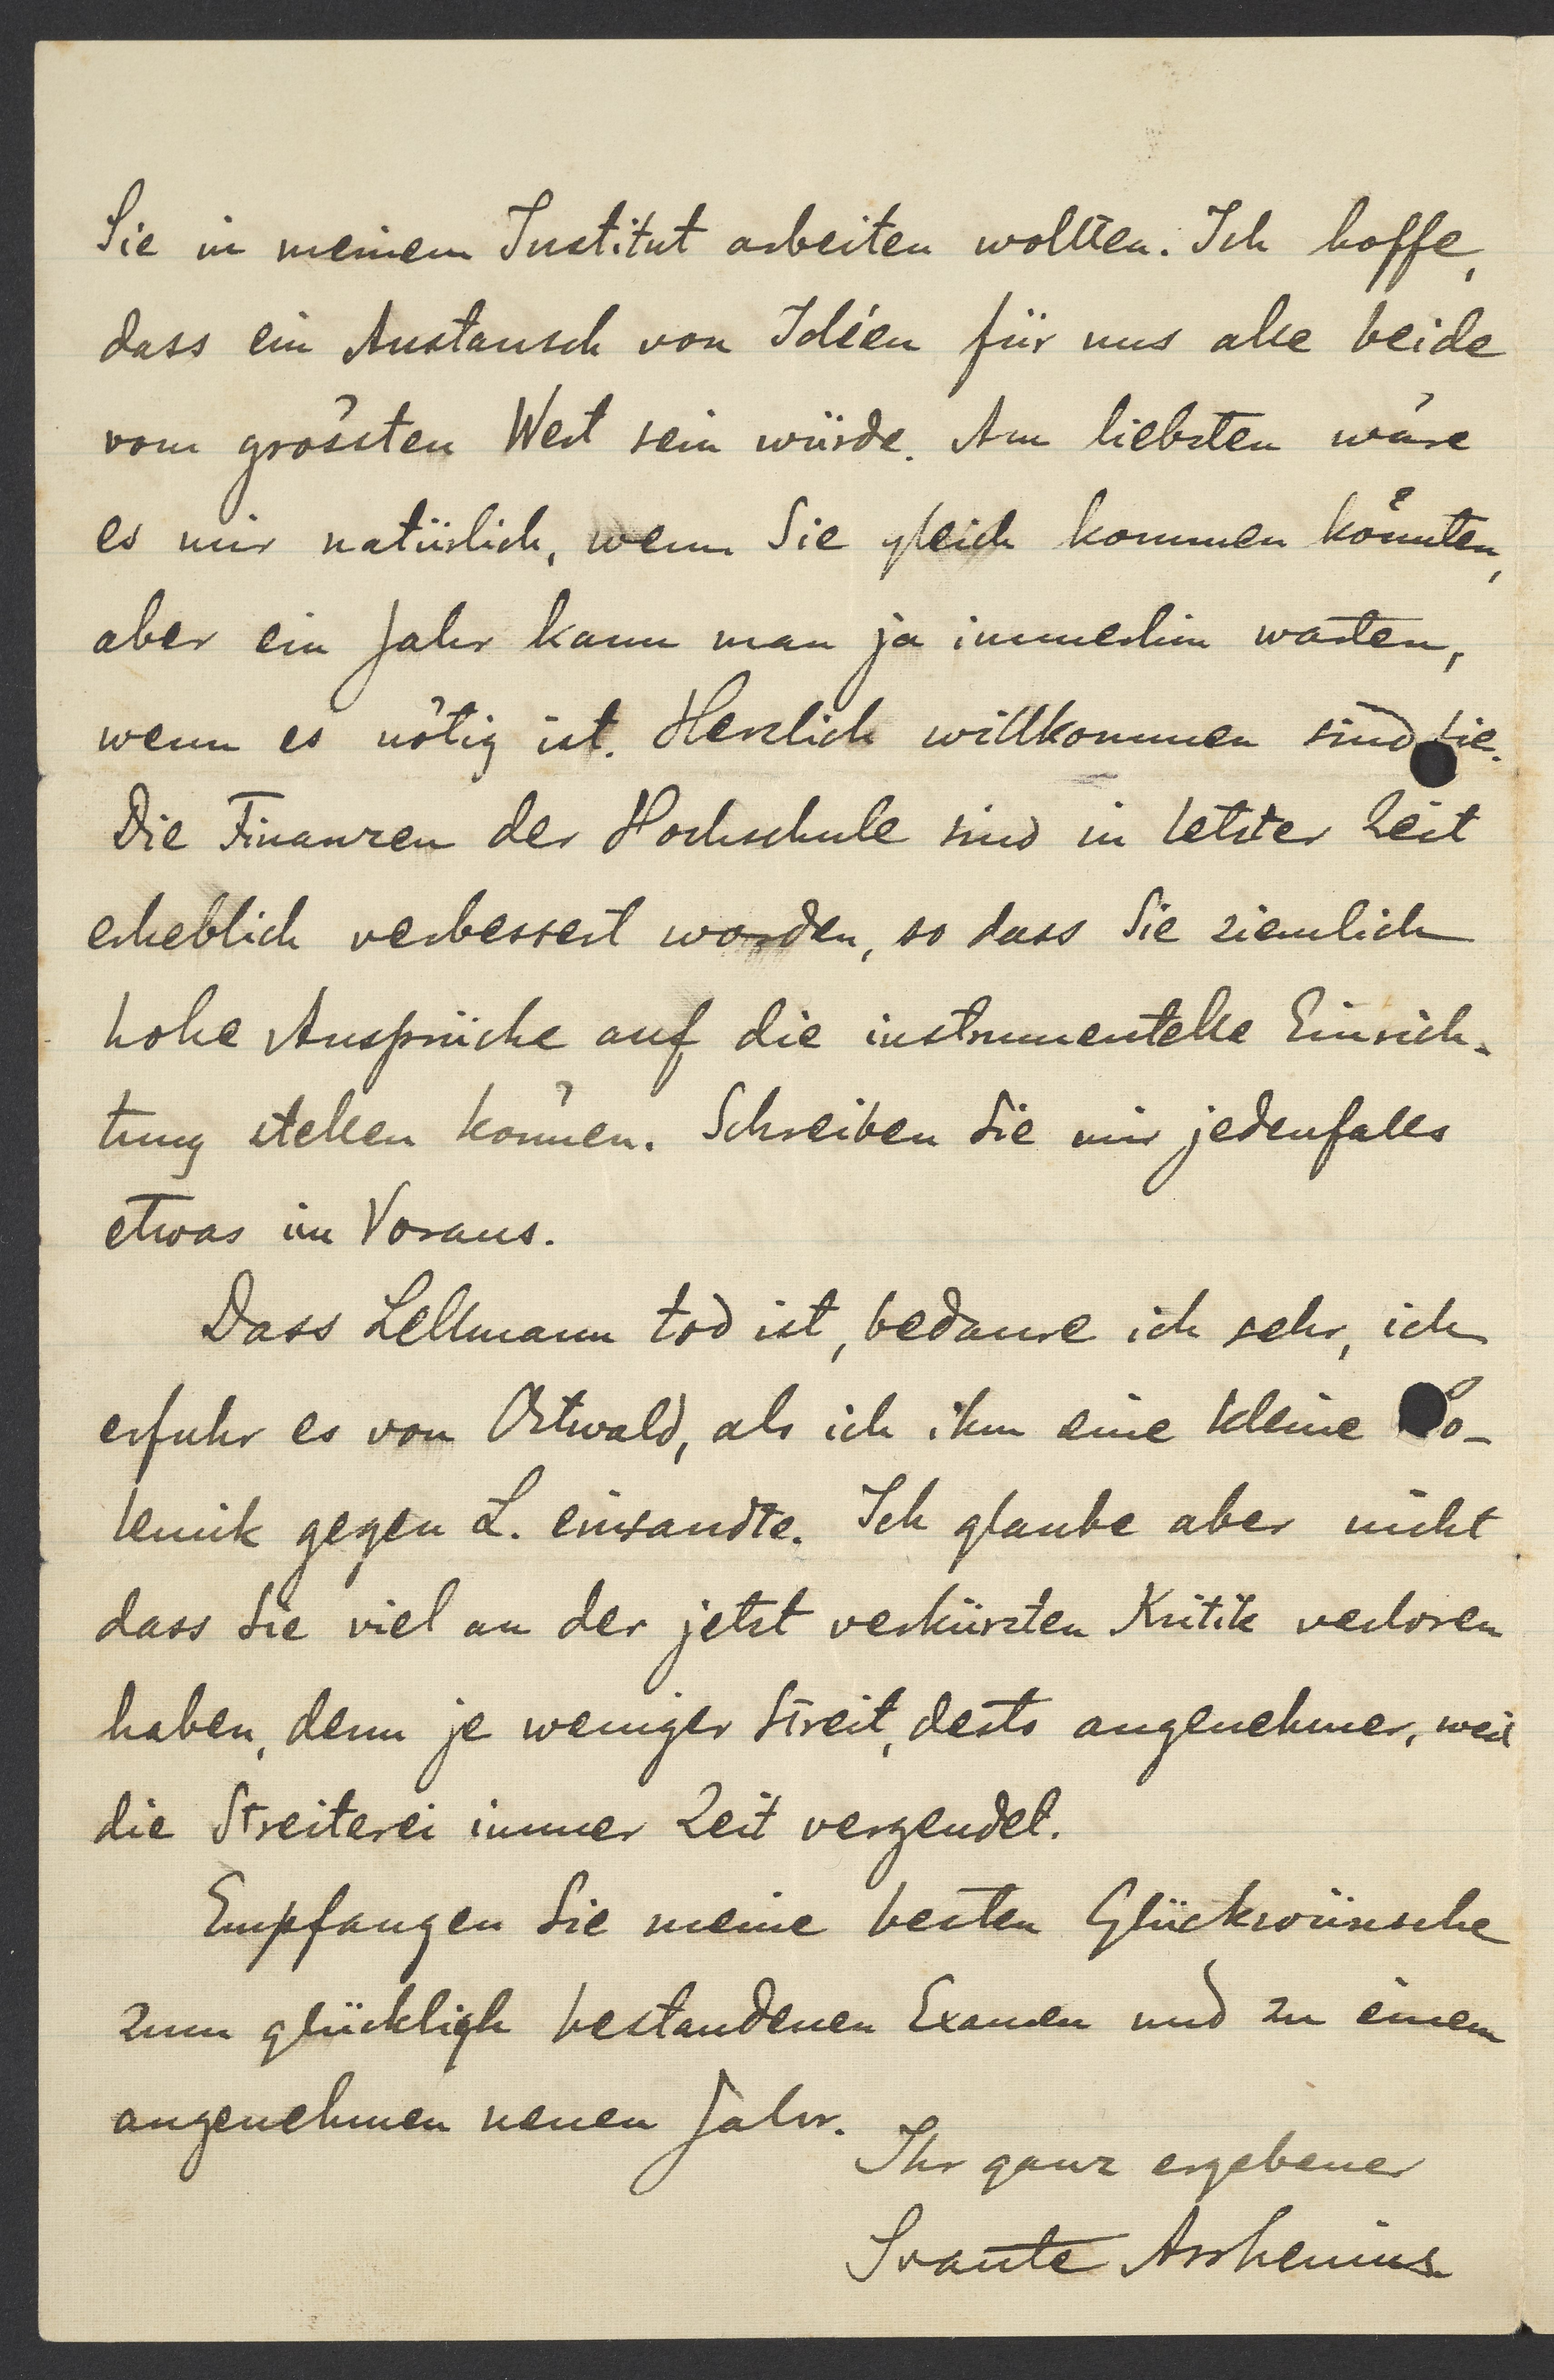 Sie in meinem Institut arbeiten wollten. Ich hoffe,
dass ein Austausch von Idéen für uns alle beide
vom grössten Wert sein würde. Am liebsten wäre
es mir natürlich, wenn Sie gleich kommen könnten,
aber ein Jahr kann man ja immerhin warten,
wenn es nötig ist. Herzlich willkommen sind Sie.
Die Finanzen der Hochschule sind in letzter Zeit
erheblich verbessert worden, so dass Sie ziemlich
hohe Ansprüche auf die instrumentelle Einrich-
tung stellen können. Schreiben Sie mir jedenfalls
etwas im Voraus.
Dass Lellmann tod ist, bedaure ich sehr, ich
erfuhr es von Ostwald, als ich ihm eine kleine Po-
lemik gegen L. einsandte. Ich glaube aber nicht
dass Sie viel an der jetzt verkürzten Kritik verloren
haben, denn je weniger Streit, desto angenehmer, weil
die Streiterei immer Zeit vergendet.
Empfangen Sie meine besten Glückwünsche
zum glücklich bestandenen Examen und zu einem
angenehmen neuen Jahr.
Ihr ganz ergebener
Svante Arrhenius